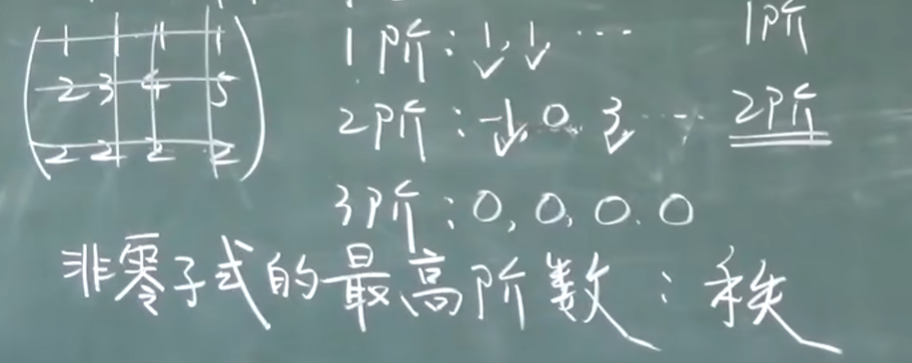 1 1 1 1
2 3 4 5
2 2 2 2
1阶：1, 1 … 1阶
2阶：-1, 0, 3, … 2阶
3阶：0, 0, 0. 0
非零子式的最高阶数：秩